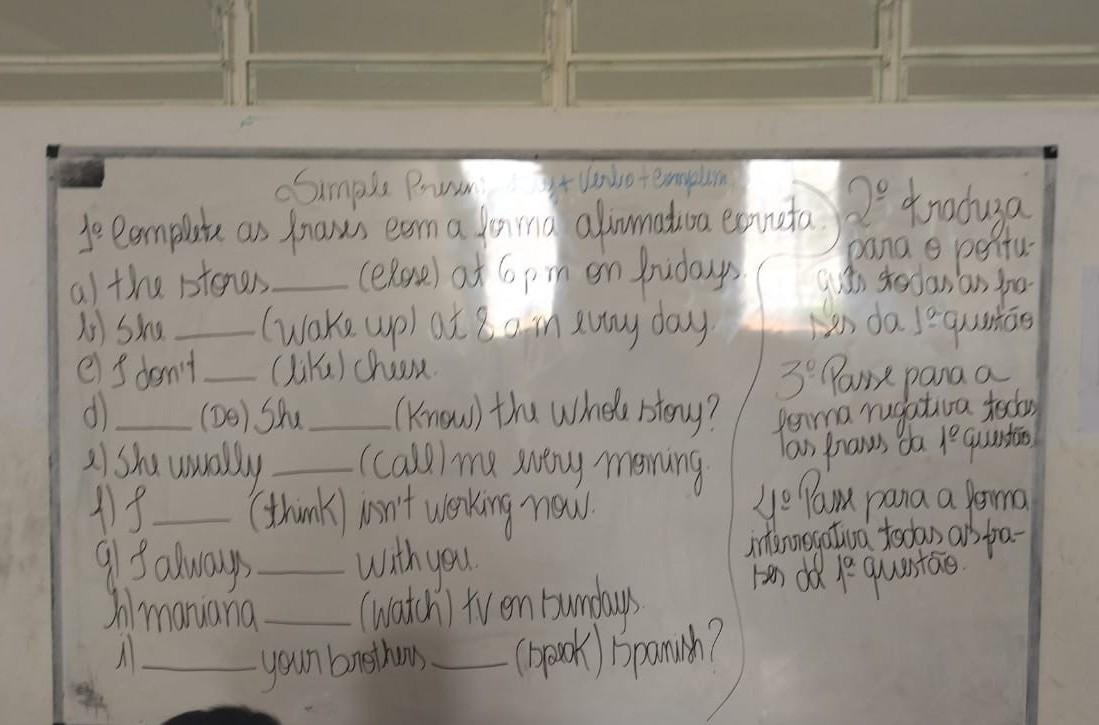 Simple Presen + Verbo + complem
1º Complete as frases com a forma afirmativa correta.
a) the stores ______ (close) at 6 pm on fridays.
b) She ______ (Wake up) at 8 am every day.
c) I don't ____ (like) cheese.
d) ______ (Do) She ______ (Know) the whole story?
e) She usually ______ (call) me every morning.
f) I ______ (think) isn't working now.
g) I always ______ with you.
h) mariana ______ (watch) tv on sundays.
i) ______ your brothers ______ (speak) Spanish?
2º traduza
para o portu-
guês todas as fra-
ses da 1º questão
3º Passe para a
forma negativa todas
las frases da 1º questão
4º Passe para a forma
interrogativa todas as fra-
ses da 1º questão.